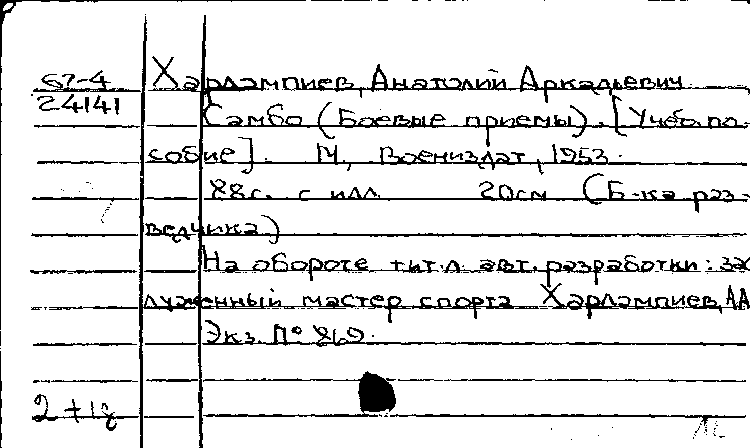 67-4
24141
Харлампиев, Анатолий Аркадьевич
Самбо (Боевые приемы). [Учеб. по-
собие]. М., Воениздат, 1953.
88 с. с илл. 20 см (Б-ка раз-
ведчика)
На обороте тит. л. авт. разработки: зас
луженный мастер спорта Харлампиев, АА
Экз. №
2 +